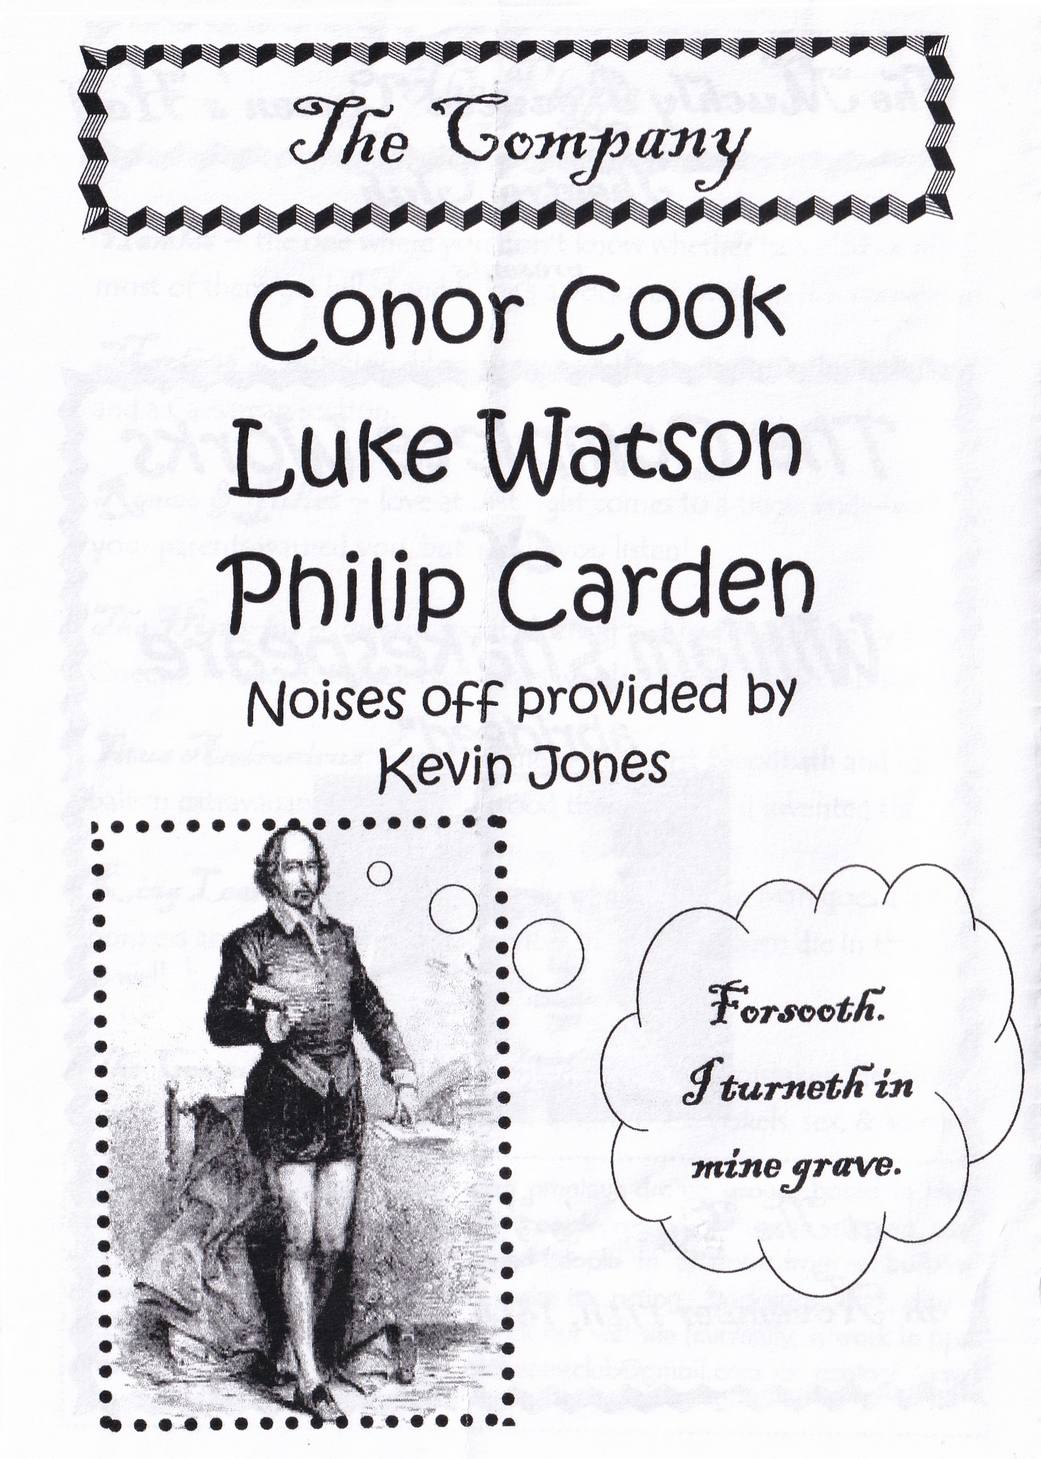 The Company
Conor Cook
Luke Watson
Philip Carden
Noises off provided by
Kevin Jones
Forsooth.
I turneth in
mine grave.